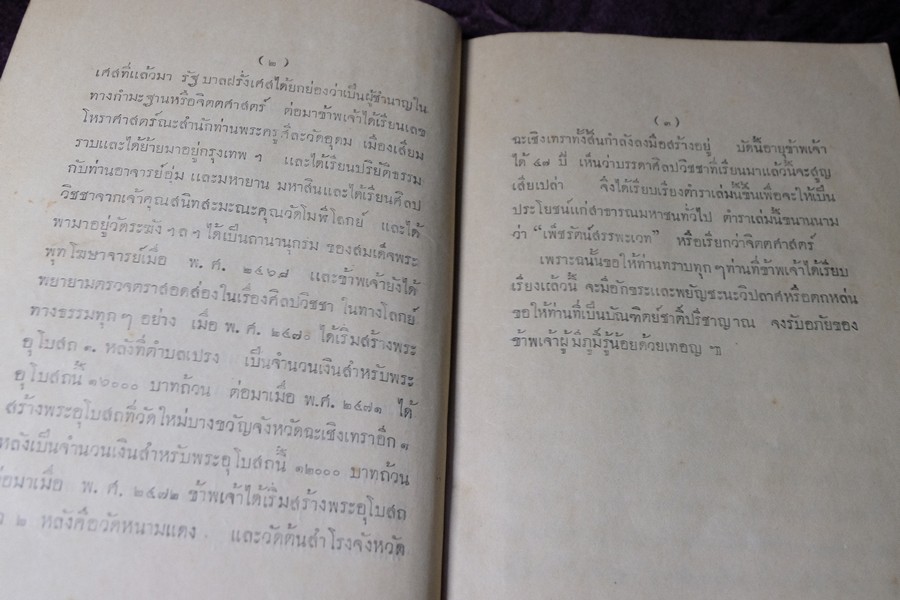 (๒)
เศสที่แล้วมา รัฐบาลฝรั่งเศสได้ยกย่องว่าเป็นผู้ชำนาญใน
ทางกำมะฐานหรือจิตตศาสตร์ ต่อมาข้าพเจ้าได้เรียนเลข
โหราศาสตร์ณะสำนักท่านพระครูสี่ละวัดอุดม เมืองเสียม
ราบและได้ย้ายมาอยู่กรุงเทพ ฯ และได้เรียนปริยัติธรรม
กับท่านอาจารย์อุ่ม และมหายาน มหาสินและได้เรียนศิลป
วิชชาจากเจ้าคุณสนิทสะมะณะคุณวัดโมฬีโลกย์ และได้
พามาอยู่วัดระฆัง ฯลฯ ได้เป็นถานานุกรม ของสมเด็จพระ
พุทโฆษาจารย์เมื่อ พ. ศ. ๒๔๖๘ และข้าพเจ้ายังได้
พยายามตรวจตราสอดส่องในเรื่องศิลปวิชชา ในทางโลกย์
ทางธรรมทุกๆ อย่าง เมื่อ พ. ศ. ๒๔๗๐ ได้เริ่มสร้างพระ
อุโบสถ ๑. หลังที่ตำบลเปรง เป็นจำนวนเงินสำหรับพระ
อุโบสถนี้ ๑๖๐๐๐ บาทถ้วน ต่อมาเมื่อ พ.ศ. ๒๔๗๑ ได้
สร้างพระอุโบสถที่วัดใหม่บางขวัญจังหวัดฉะเชิงเทราอีก ๑
หลังเป็นจำนวนเงินสำหรับพระอุโบสถนี้ ๑๒๐๐๐ บาทถ้วน
ต่อมาเมื่อ พ. ศ. ๒๔๗๒ ข้าพเจ้าได้เริ่มสร้างพระอุโบสถ
๒ หลังคือวัดหนามแดง และวัดต้นสำโรงจังหวัด
(๓)
ฉะเชิงเทราทั้งสิ้นกำลังลงมือสร้างอยู่ บัดนี้อายุข้าพเจ้า
ได้ ๔๗ ปี เห็นว่าบรรดาศิลปวิชชาที่เรียนมาแล้วนี้จะสูญ
เสียเปล่า จึงได้เรียบเรื่องตำราเล่มนี้ขึ้นเพื่อจะให้เป็น
ประโยชน์แก่สาธารณมหาชนทั่วไป ตำราเล่มนี้ขนานนาม
ว่า “เพ็ชรัตน์สรรพะเวท” หรือเรียกว่าจิตตศาสตร์
เพราะฉนั้นขอให้ท่านทราบทุกๆท่านที่ข้าพเจ้าได้เรียบ
เรียงแล้วนี้ จะมีอักขระและพยัญชะนะวิปลาศหรือตกหล่น
ขอให้ท่านที่เป็นบัณฑิตย์ชาติ์ปรีชาญาณ จงรับอภัยของ
ข้าพเจ้าผู้มีภูมิ์รู้น้อยด้วยเทอญ ๚